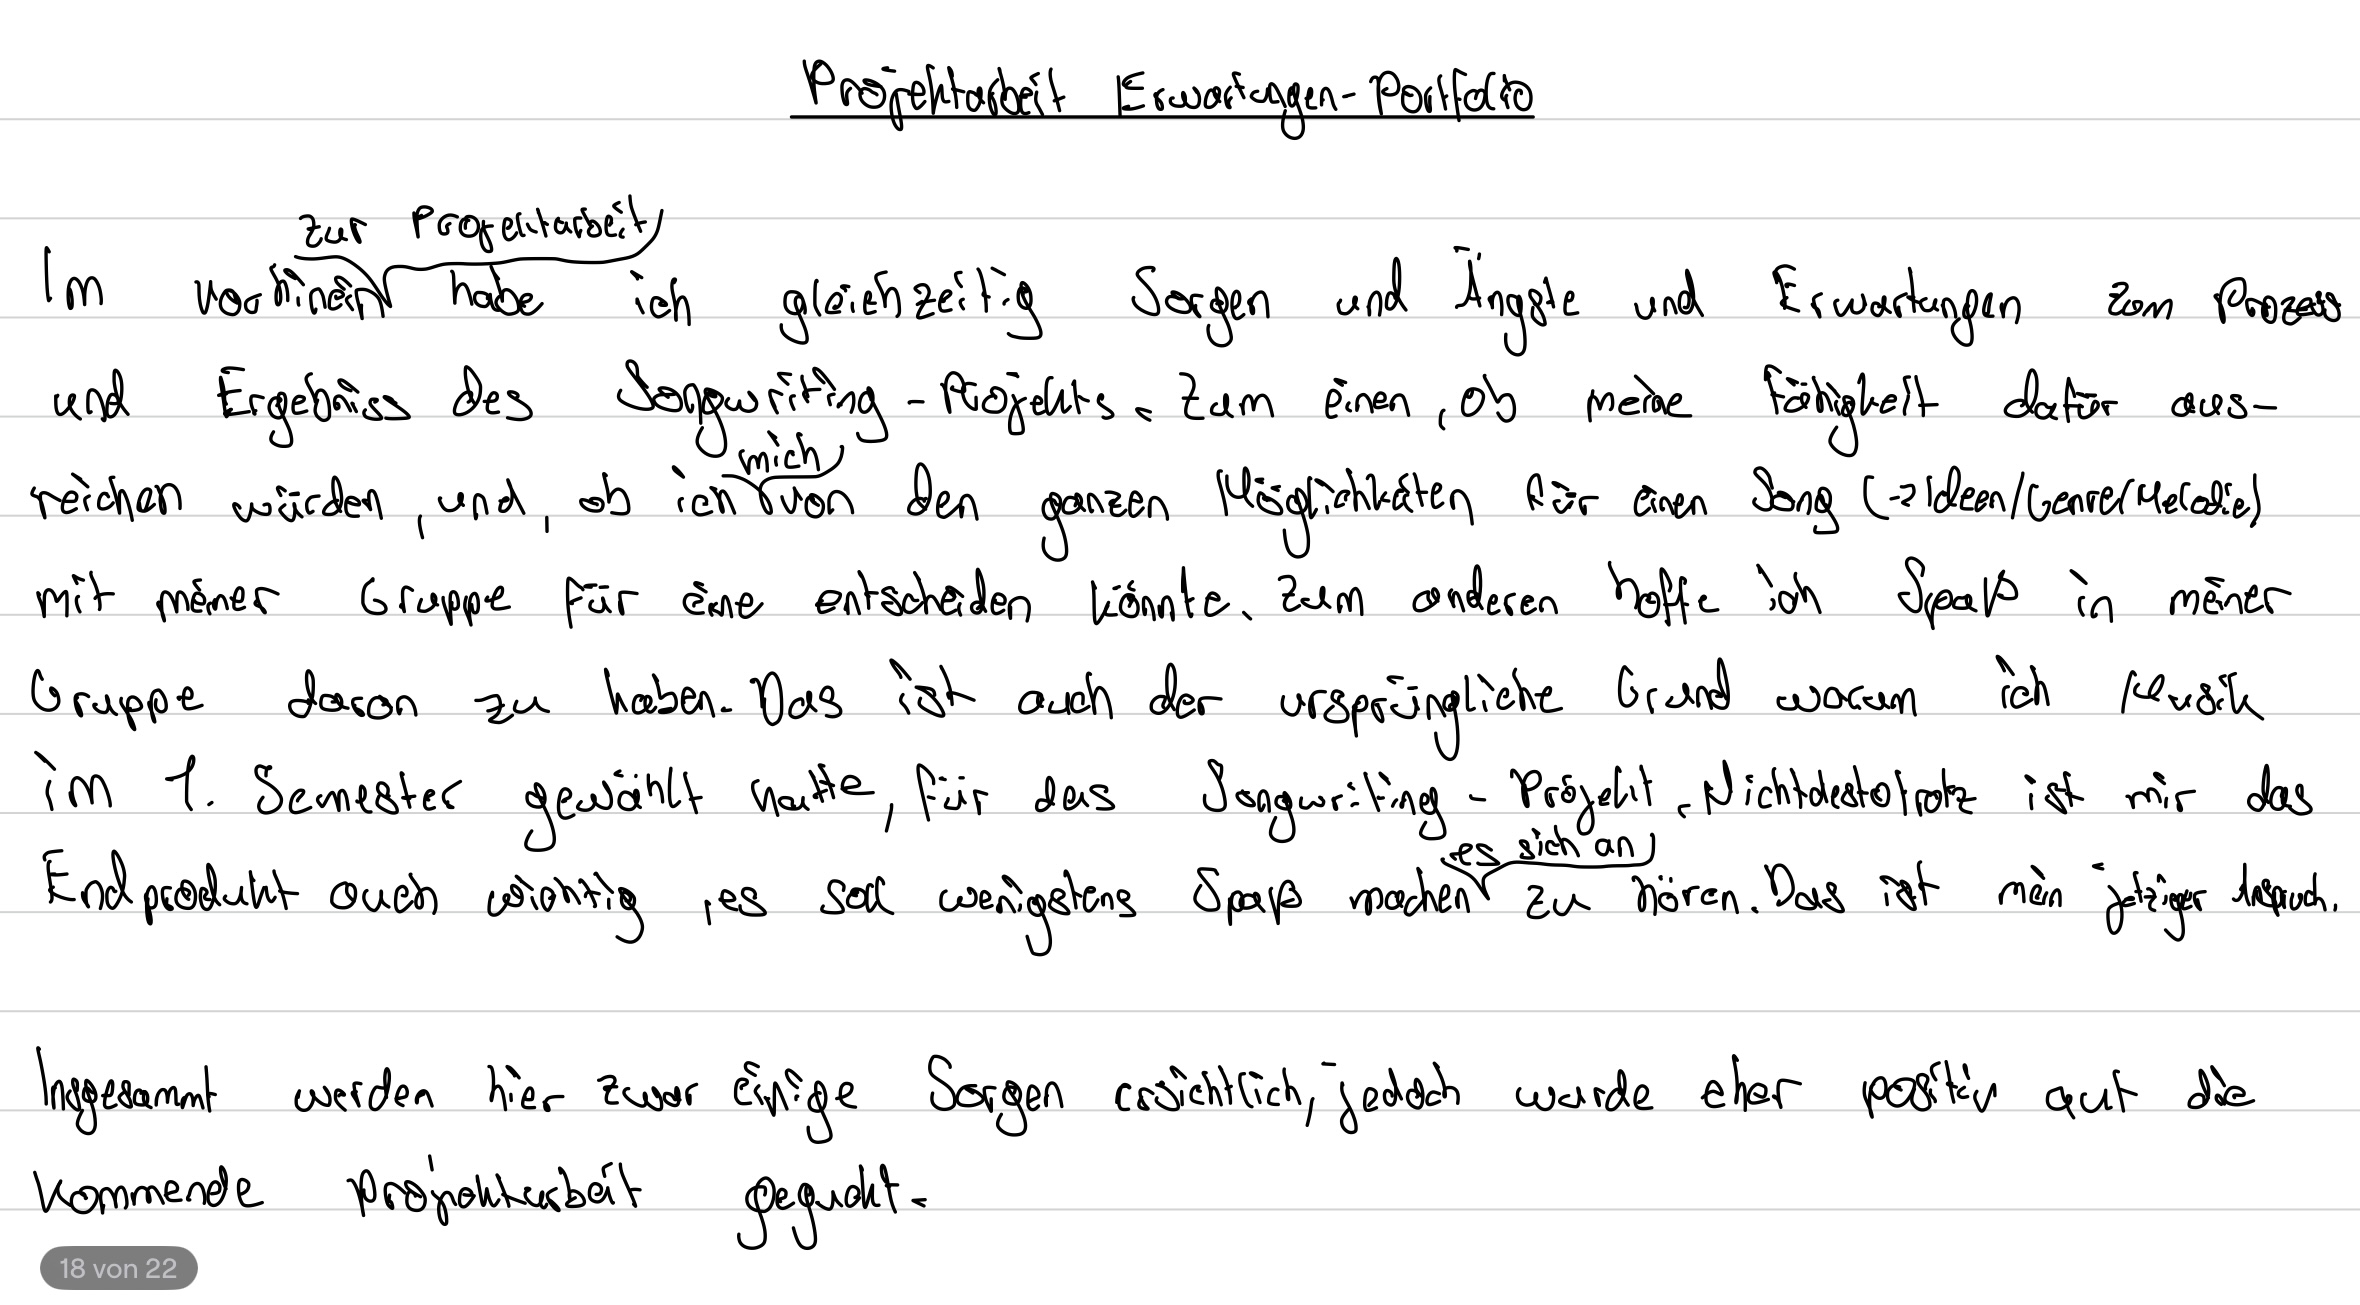 Projektarbeit Erwartungen-Portfolio
zur Projektarbeit
Im vorhinein habe ich gleichzeitig Sorgen und Ängste und Erwartungen zum Prozess
und Ergebniss des Songwriting-Projekts. Zum einen, ob meine Fähigkeit dafür aus-
mich
reichen würden, und, ob ich von den ganzen Möglichkeiten für einen Song (->Ideen/Genre/Melodie)
mit meiner Gruppe für eine entscheiden könnte. Zum anderen hoffe ich Spaß in meiner
Gruppe daran zu haben. Das ist auch der ursprüngliche Grund warum ich Musik
im 1. Semester gewählt hatte, für das Songwriting-Projekt. Nichtdestotrotz ist mir das
es sich an
Endprodukt auch wichtig, es soll wenigstens Spaß machen zu hören. Das ist mein jetziger Anspruch.
Insgesammt werden hier zwar einige Sorgen ersichtlich, jedoch wurde eher positiv auf die
kommende Projektarbeit geguckt.
18 von 22